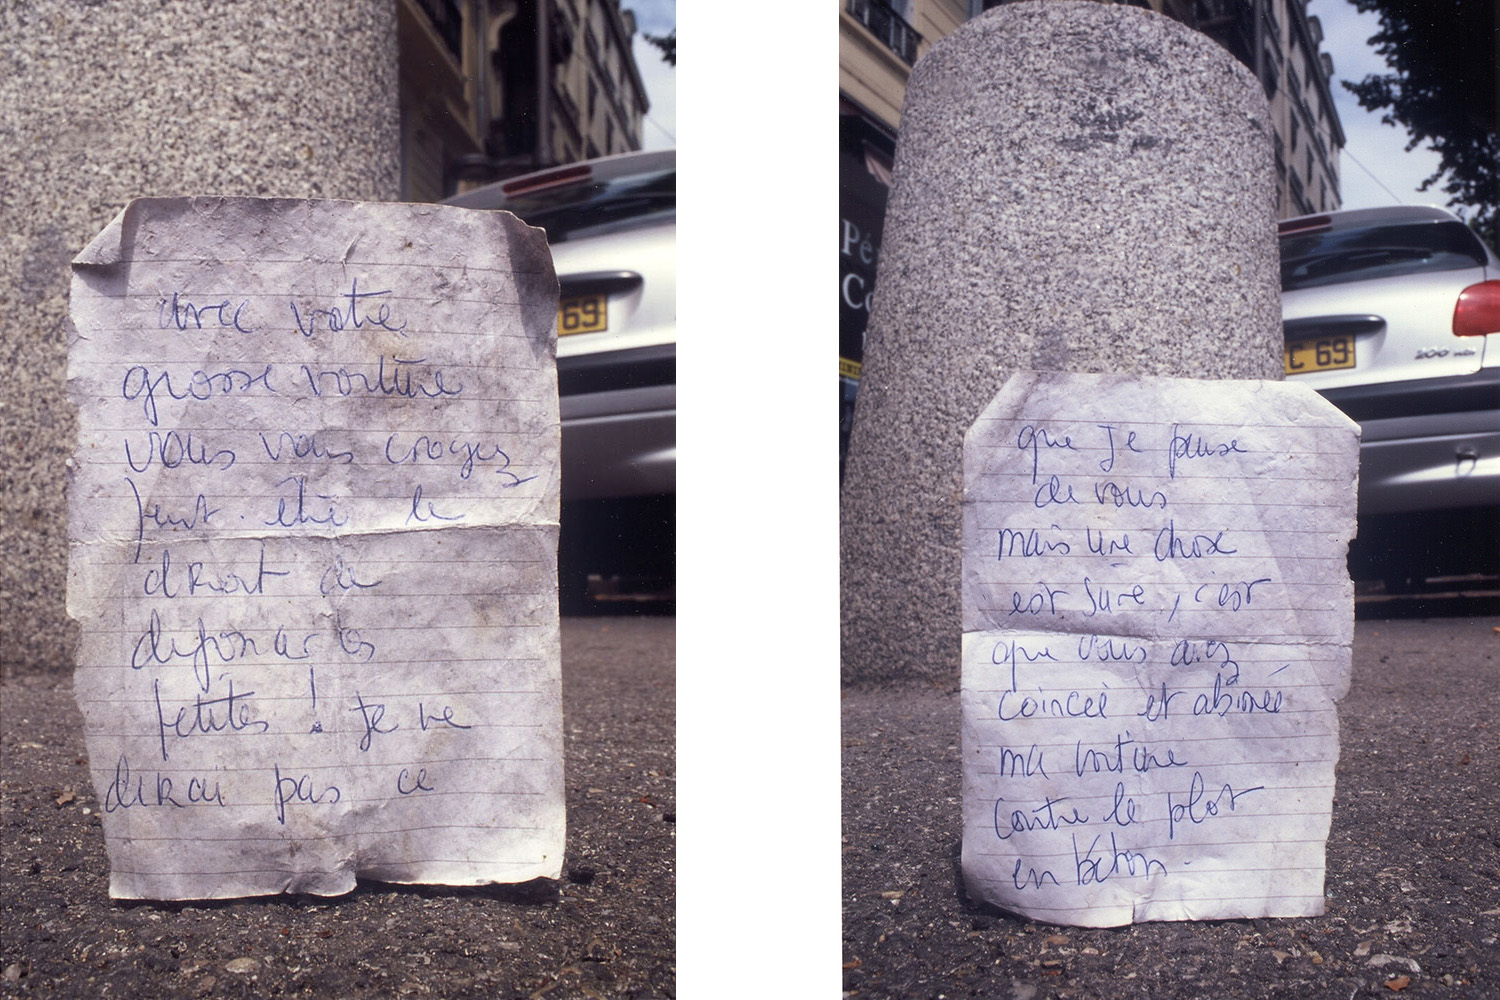 avec votre
grosse voiture
vous vous croyez
peut-être le
droit de
défoncer les
petites ! Je ne
dirai pas ce
69
que je pense
de vous
mais une chose
est sure, c'est
que vous avez
coincée et abimée
ma voiture
contre le plot
en béton.
Pé
Co
C 69